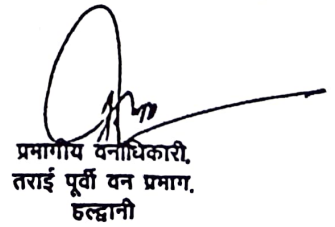 प्रभागीय वनाधिकारी,
तराई पूर्वी वन प्रभाग,
हल्द्वानी